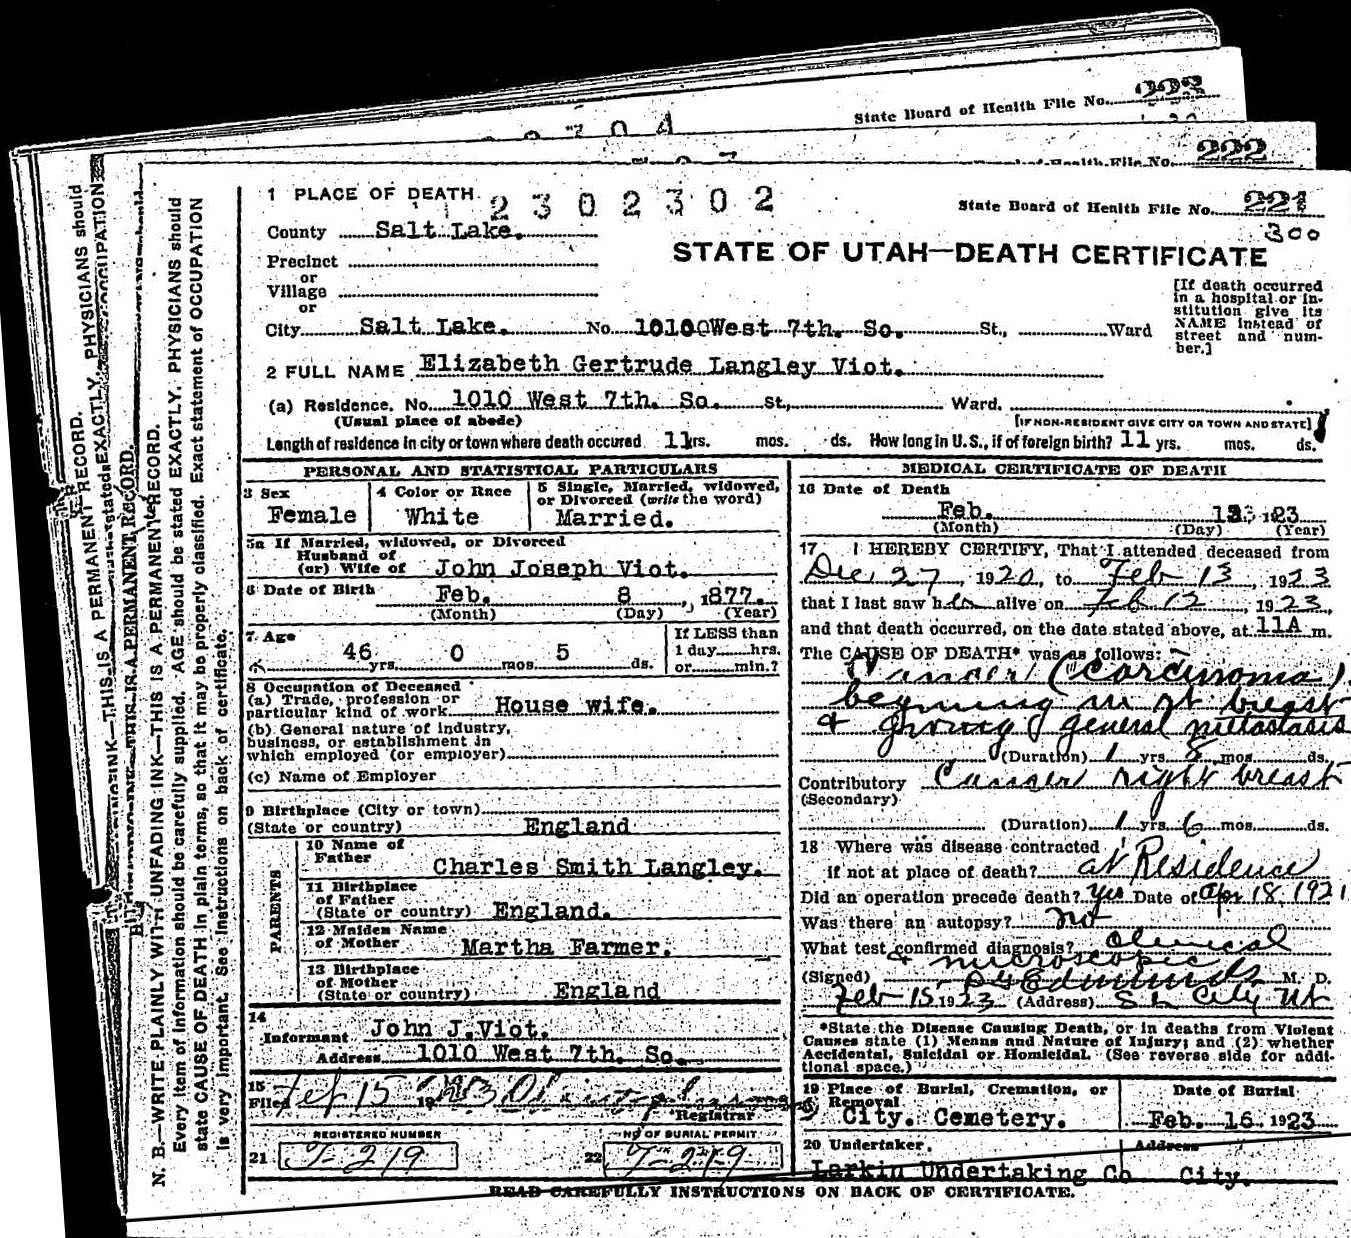 State Board of Health File No. 223
222
1 PLACE OF DEATH
2302302
State Board of Health File No. 221
300
County Salt Lake.
STATE OF UTAH—DEATH CERTIFICATE
Precinct
or
Village
or
[If death occurred
in a hospital or in-
stitution give its
NAME instead of
street and num-
ber.]
City Salt Lake. No. 1010 West 7th. So. St., Ward
2 FULL NAME Elizabeth Gertrude Langley Viot.
(a) Residence. No. 1010 West 7th. So. St., Ward.
(Usual place of abode) [IF NON-RESIDENT GIVE CITY OR TOWN AND STATE]
Length of residence in city or town where death occured 11 rs. mos. ds. How long in U.S., if of foreign birth? 11 yrs. mos. ds.
PERSONAL AND STATISTICAL PARTICULARS
3 Sex
Female
4 Color or Race
White
5 Single, Married, widowed,
or Divorced (write the word)
Married.
5a If Married, widowed, or Divorced
Husband of
(or) Wife of John Joseph Viot.
6 Date of Birth Feb. 8, 1877.
(Month) (Day) (Year)
7 Age
46 yrs. 0 mos. 5 ds.
If LESS than
1 day hrs.
or min.?
8 Occupation of Deceased
(a) Trade, profession or
particular kind of work House wife.
(b) General nature of Industry,
business, or establishment in
which employed (or employer)
(c) Name of Employer
9 Birthplace (City or town)
(State or country) England
PARENTS
10 Name of
Father Charles Smith Langley.
11 Birthplace
of Father
(State or country) England.
12 Maiden Name
of Mother Martha Farmer.
13 Birthplace
of Mother
(State or country) England
14
Informant John J. Viot.
Address 1010 West 7th. So.
15
Filed Feb 15 1923
Registrar
REGISTERED NUMBER
21 T-219
NO OF BURIAL PERMIT
22 T-219
MEDICAL CERTIFICATE OF DEATH
16 Date of Death
Feb. 13 1923
(Month) (Day) (Year)
17 I HEREBY CERTIFY, That I attended deceased from
Dec. 27, 1920, to Feb 13, 1923
that I last saw her alive on Feb 12, 1923,
and that death occurred, on the date stated above, at 11A m.
The CAUSE OF DEATH* was as follows:
Cancer (Carcinoma)
beginning in rt breast
& growing general metastasis
(Duration) 1 yrs 8 mos. ds.
Contributory Cancer right breast
(Secondary)
(Duration) 1 yrs 6 mos. ds.
18 Where was disease contracted
if not at place of death? at Residence
Did an operation precede death? yes Date of Apr 18, 1921
Was there an autopsy? no
What test confirmed diagnosis? Clinical
& microscopic
(Signed) Edmunds M. D.
Feb 15 1923 (Address) S L City Ut
*State the Disease Causing Death, or in deaths from Violent
Causes state (1) Means and Nature of Injury; and (2) whether
Accidental, Suicidal or Homicidal. (See reverse side for addi-
tional space.)
19 Place of Burial, Cremation, or
Removal
City. Cemetery.
Date of Burial
Feb. 16. 1923
20 Undertaker.
Larkin Undertaking Co
Address
City.
READ CAREFULLY INSTRUCTIONS ON BACK OF CERTIFICATE.
N. B.—WRITE PLAINLY WITH UNFADING INK—THIS IS A PERMANENT RECORD.
Every item of information should be carefully supplied. AGE should be stated EXACTLY. PHYSICIANS should
state CAUSE OF DEATH in plain terms, so that it may be properly classified. Exact statement of OCCUPATION
is very important. See instructions on back of certificate.